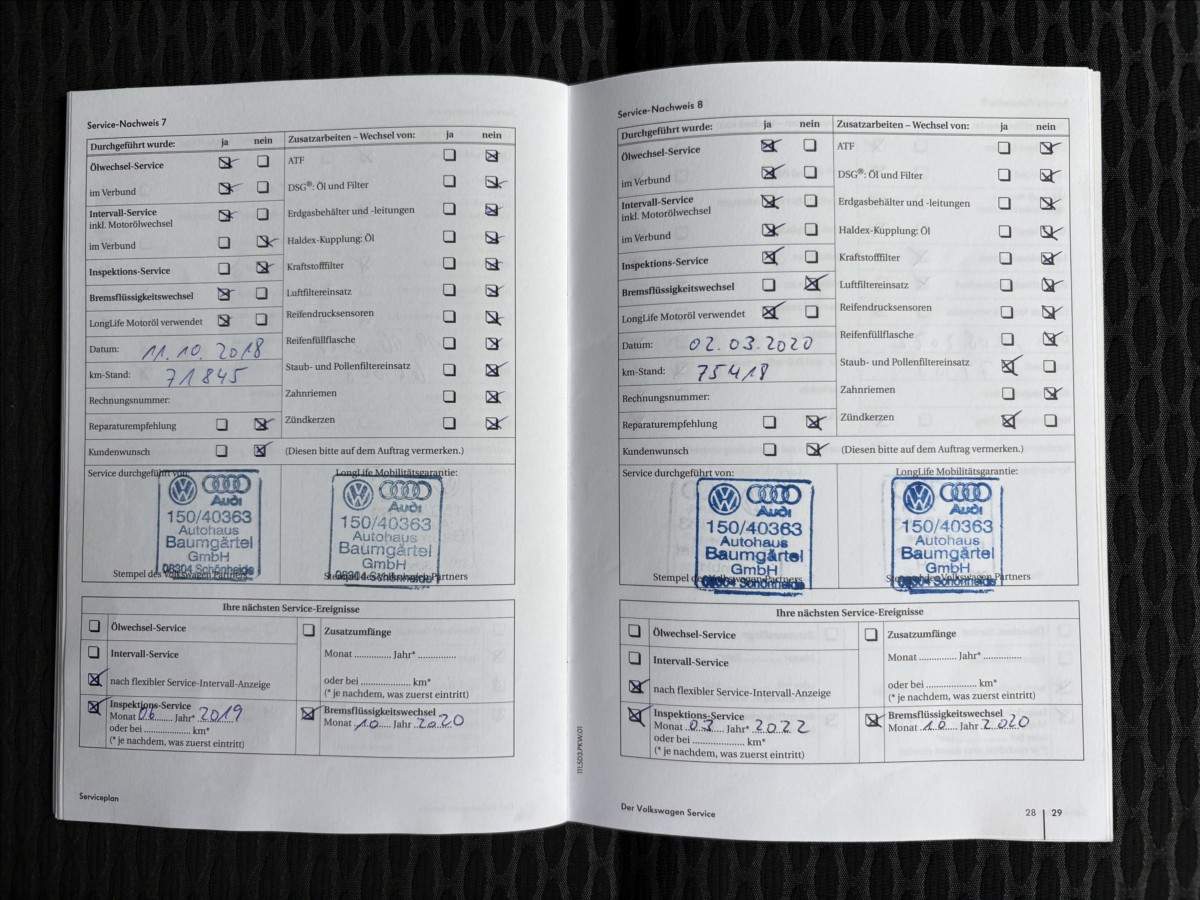 Service-Nachweis 7
Durchgeführt wurde: ja nein
Ölwechsel-Service
im Verbund
Intervall-Service
inkl. Motorölwechsel
im Verbund
Inspektions-Service
Bremsflüssigkeitswechsel
LongLife Motoröl verwendet
Datum: 11.10.2018
km-Stand: 71845
Rechnungsnummer:
Reparaturempfehlung
Kundenwunsch
Zusatzarbeiten – Wechsel von: ja nein
ATF
DSG®: Öl und Filter
Erdgasbehälter und -leitungen
Haldex-Kupplung: Öl
Kraftstofffilter
Luftfiltereinsatz
Reifendrucksensoren
Reifenfüllflasche
Staub- und Pollenfiltereinsatz
Zahnriemen
Zündkerzen
(Diesen bitte auf dem Auftrag vermerken.)
Service durchgeführt von:
Audi
150/40363
Autohaus
Baumgärtel
GmbH
08304 Schönheide
Stempel des Volkswagen Partners
LongLife Mobilitätsgarantie:
Audi
150/40363
Autohaus
Baumgärtel
GmbH
08304 Schönheide
Stempel des Volkswagen Partners
Ihre nächsten Service-Ereignisse
Ölwechsel-Service
Intervall-Service
nach flexibler Service-Intervall-Anzeige
Inspektions-Service
Monat 06 Jahr* 2019
oder bei .................... km*
(* je nachdem, was zuerst eintritt)
Zusatzumfänge
Monat .............. Jahr* ..............
oder bei .................... km*
(* je nachdem, was zuerst eintritt)
Bremsflüssigkeitswechsel
Monat 10 Jahr 2020
Serviceplan
111.5D3.PKW.01
Service-Nachweis 8
Durchgeführt wurde: ja nein
Ölwechsel-Service
im Verbund
Intervall-Service
inkl. Motorölwechsel
im Verbund
Inspektions-Service
Bremsflüssigkeitswechsel
LongLife Motoröl verwendet
Datum: 02.03.2020
km-Stand: 75418
Rechnungsnummer:
Reparaturempfehlung
Kundenwunsch
Zusatzarbeiten – Wechsel von: ja nein
ATF
DSG®: Öl und Filter
Erdgasbehälter und -leitungen
Haldex-Kupplung: Öl
Kraftstofffilter
Luftfiltereinsatz
Reifendrucksensoren
Reifenfüllflasche
Staub- und Pollenfiltereinsatz
Zahnriemen
Zündkerzen
(Diesen bitte auf dem Auftrag vermerken.)
Service durchgeführt von:
Audi
150/40363
Autohaus
Baumgärtel
GmbH
08304 Schönheide
Stempel des Volkswagen Partners
LongLife Mobilitätsgarantie:
Audi
150/40363
Autohaus
Baumgärtel
GmbH
08304 Schönheide
Stempel des Volkswagen Partners
Ihre nächsten Service-Ereignisse
Ölwechsel-Service
Intervall-Service
nach flexibler Service-Intervall-Anzeige
Inspektions-Service
Monat 03 Jahr* 2022
oder bei .................... km*
(* je nachdem, was zuerst eintritt)
Zusatzumfänge
Monat .............. Jahr* ..............
oder bei .................... km*
(* je nachdem, was zuerst eintritt)
Bremsflüssigkeitswechsel
Monat 10 Jahr 2020
Der Volkswagen Service
28 29